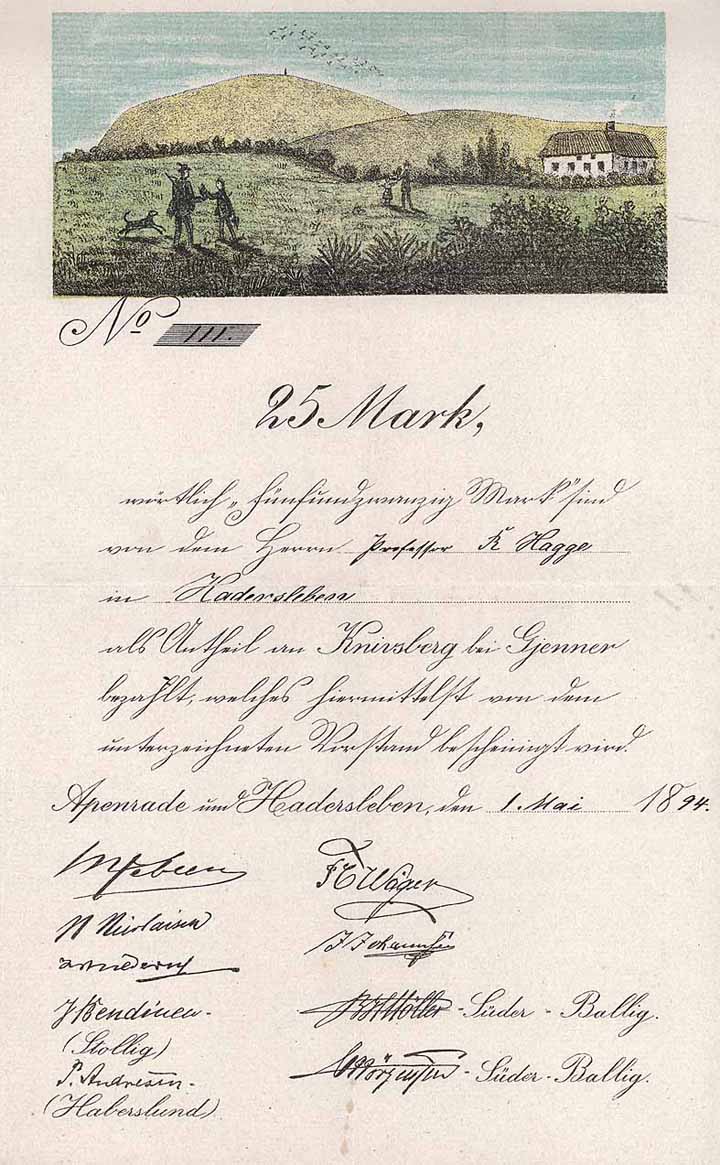 No 111.
25 Mark,
wörtlich „Fünfundzwanzig Mark" sind
von dem Herrn Professor K Hagge
in Hadersleben
als Antheil an Knivsberg bei Gjenner
bezahlt, welches hiermittelst von dem
unterzeichneten Vorstand bescheinigt wird.
Apenrade und Hadersleben, den 1. Mai 1894.
N Nicolaisen
(Stollig)
P. Andresen -
(Haberslund)
J Johannsen
Möller - Süder - Ballig.
- Süder - Ballig.